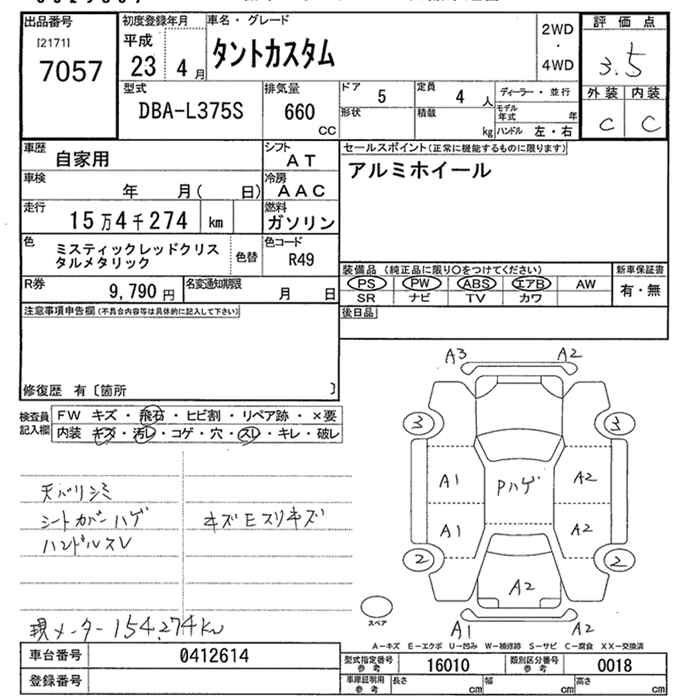 出品番号
[2171]
7057
初度登録年月
平成
23年 4月
車名・グレード
タントカスタム
2WD
・
4WD
評価点
3.5
外装 内装
C C
型式
DBA-L375S
排気量
660 CC
ドア 5
形状
定員 4 人
積載 kg
ディーラー・並行
モデル年式 年
ハンドル 左・右
車歴
自家用
シフト
AT
車検
年 月( 日)
冷房
AAC
走行
15万4千274 km
燃料
ガソリン
色
ミスティックレッドクリス
タルメタリック
色替
色コード
R49
R券
9,790 円
名変通知期限
月 日
セールスポイント(正常に機能するものに限ります)
アルミホイール
装備品 (純正品に限り○をつけてください)
PS PW ABS エアB AW
SR ナビ TV カワ
新車保証書
有・無
後日品
注意事項申告欄(不具合内容等は具体的に記入して下さい)
修復歴 有〔箇所 〕
検査員
記入欄
FW キズ・飛石・ヒビ割・リペア跡・×要
内装 キズ・汚レ・コゲ・穴・スレ・キレ・破レ
天バリシミ
シートカバーハゲ
ハンドルスレ
キズEスリキズ
現メーター 154,274km
A3 A2
3 3
A1 Pハゲ A2
A1 A2
2 2
A2
A1 A2
スペア
A-キズ E-エクボ U-凹み W-補修跡 S-サビ C-腐食 XX-交換済
車台番号 0412614
登録番号
型式指定番号 参考 16010
類別区分番号 参考 0018
車庫証明用 参考 長さ cm 幅 cm 高さ cm